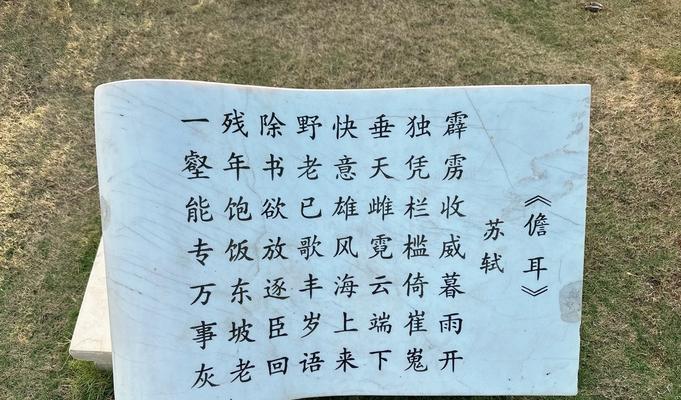 《儋耳》
苏轼
霹雳收威暮雨开
独凭栏槛倚崔嵬
垂天雌霓云端下
快意雄风海上来
野老已歌丰岁语
除书欲放逐臣回
残年饱饭东坡老
一壑能专万事灰